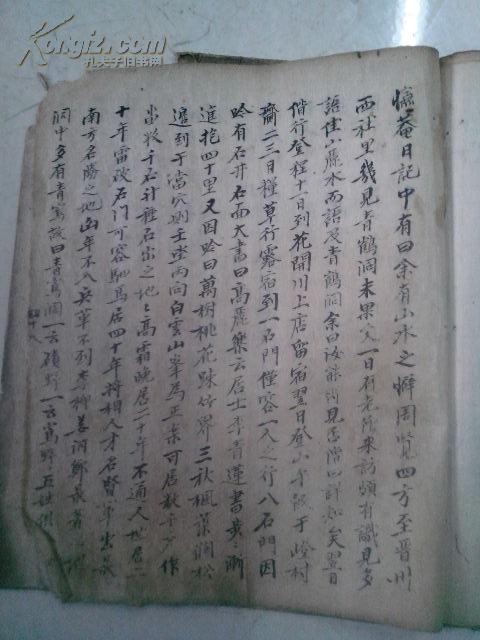 Kongfz.com
孔夫子旧书网
菴日記中有曰余有山水之癖周覽四方至晋州
西社里幾見青鶴洞未果矣一日有老除來訪頗有識見多
語佳山麗水而語及青鶴洞余曰汝能所見否階以詳知矣翌日
偕行登程十一日到花開川上店留宿翌日登山午飯于嶝村
齋二三日糧草行露宿到一石門僅容一人之行八石門因
吟有石井石面大書曰高麗樂云居士李青蓮書矣漸
進抱四十里又因吟曰萬樹桃花踈竹界三秋楓葉澗松
邊到于富穴則壬坐丙向白雲山峯為正案可居數千戶作
畓收千石計種石出之地地高霜晚居二十年不通人世居
十年雷破石門可容駟馬居四十年將相人才名賢輩出
南方名勝之地凶年不入兵革不到李柳姜河鄭
洞中多有青鶴故曰青鶴洞一云積野一云鶴野五姓